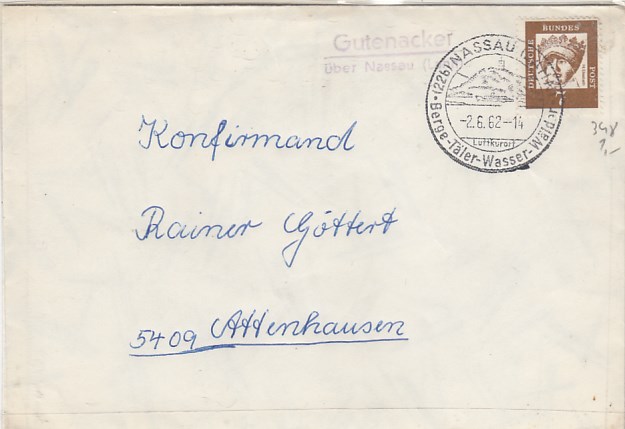 Gutenacker
über Nassau (L
(22b) NASSAU
-2.6.62-14
Luftkurort
Berge-Täler-Wasser-Wälder
DEUTSCHE BUNDES POST
348
1,-
Konfirmand
Rainer Göttert
5409 Attenhausen